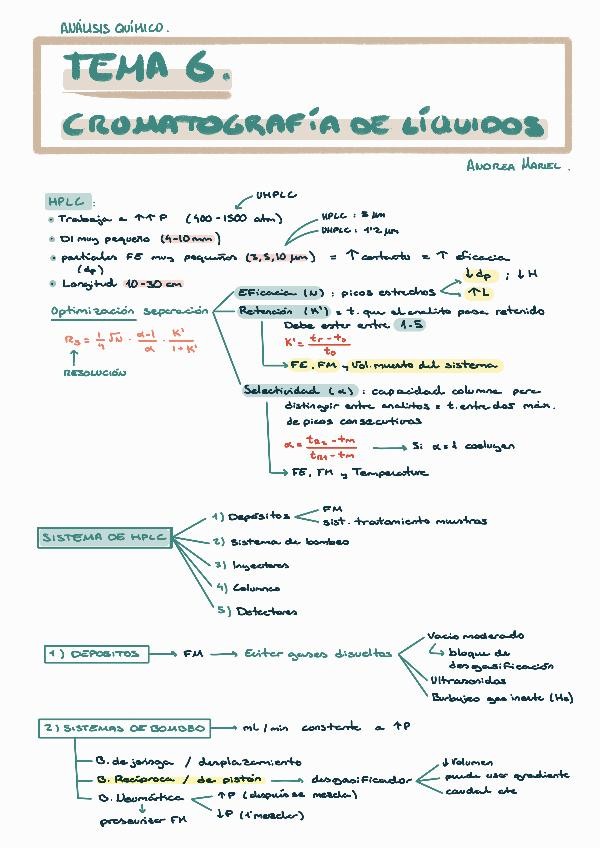 ANÁLISIS QUÍMICO.
TEMA 6.
CROMATOGRAFÍA DE LÍQUIDOS
ANDREA MARIEL.
HPLC:
UHPLC
• Trabaja a ↑↑ P (400-1500 atm)
HPLC: 3 µm
UHPLC: 1'2 µm
• DI muy pequeño (4-10 mm)
• partículas FE muy pequeñas (3,5,10 µm) = ↑ contacto = ↑ eficacia
(dp)
• Longitud 10-30 cm
↓ dp ; ↓ H
↑ L
Optimización separación
EFicacia (N) : picos estrechos
Retención (K') = t. que el analito pasa retenido
Debe estar entre 1-5
Rs = 1/4 √N · α-1/α · K'/1+K'
RESOLUCIÓN
K' = tr - to / to
FE, FM y Vol. muerto del sistema
Selectividad (α) : capacidad columna para
distinguir entre analitos = t. entre dos máx.
de picos consecutivos
α = tR2 - tm / tR1 - tm → Si α=1 coeluyen
FE, FM y Temperatura
SISTEMA DE HPLC
1) Depósitos
FM
sist. tratamiento muestras
2) Sistema de bombeo
3) Inyectores
4) Columnas
5) Detectores
1) DEPÓSITOS → FM → Evitar gases disueltos
Vacío moderado
bloque de
desgasificación
Ultrasonidos
Burbujeo gas inerte (He)
2) SISTEMAS DE BOMBEO → mL/min constante a ↑P
B. de jeringa / desplazamiento
B. Recíproca / de pistón → desgasificador
↓ Volumen
puede usar gradiente
caudal cte
B. Neumática
↑P (después se mezcla)
↓P (1º mezclar)
presurizar FM